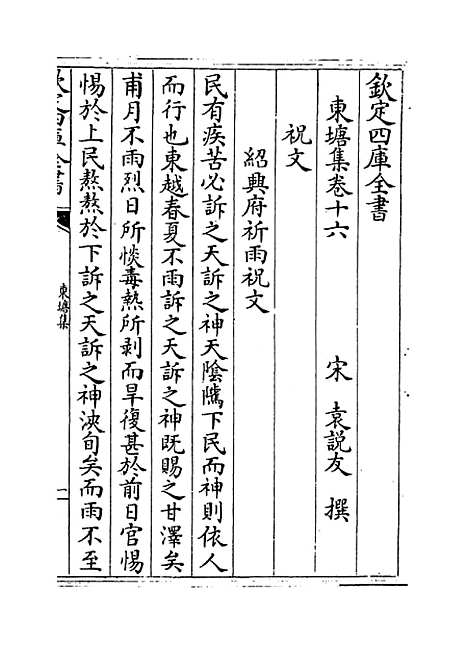 欽定四庫全書
東塘集卷十六
宋 袁説友 撰
祝文
紹興府祈雨祝文
民有疾苦必訴之天訴之神天陰隲下民而神則依人
而行也東越春夏不雨訴之天訴之神既賜之甘澤矣
甫月不雨烈日所惔毒熱所剥而旱復甚於前日官惕
惕於上民熬熬於下訴之天訴之神浹旬矣而雨不至
欽定四庫全書
東塘集
一